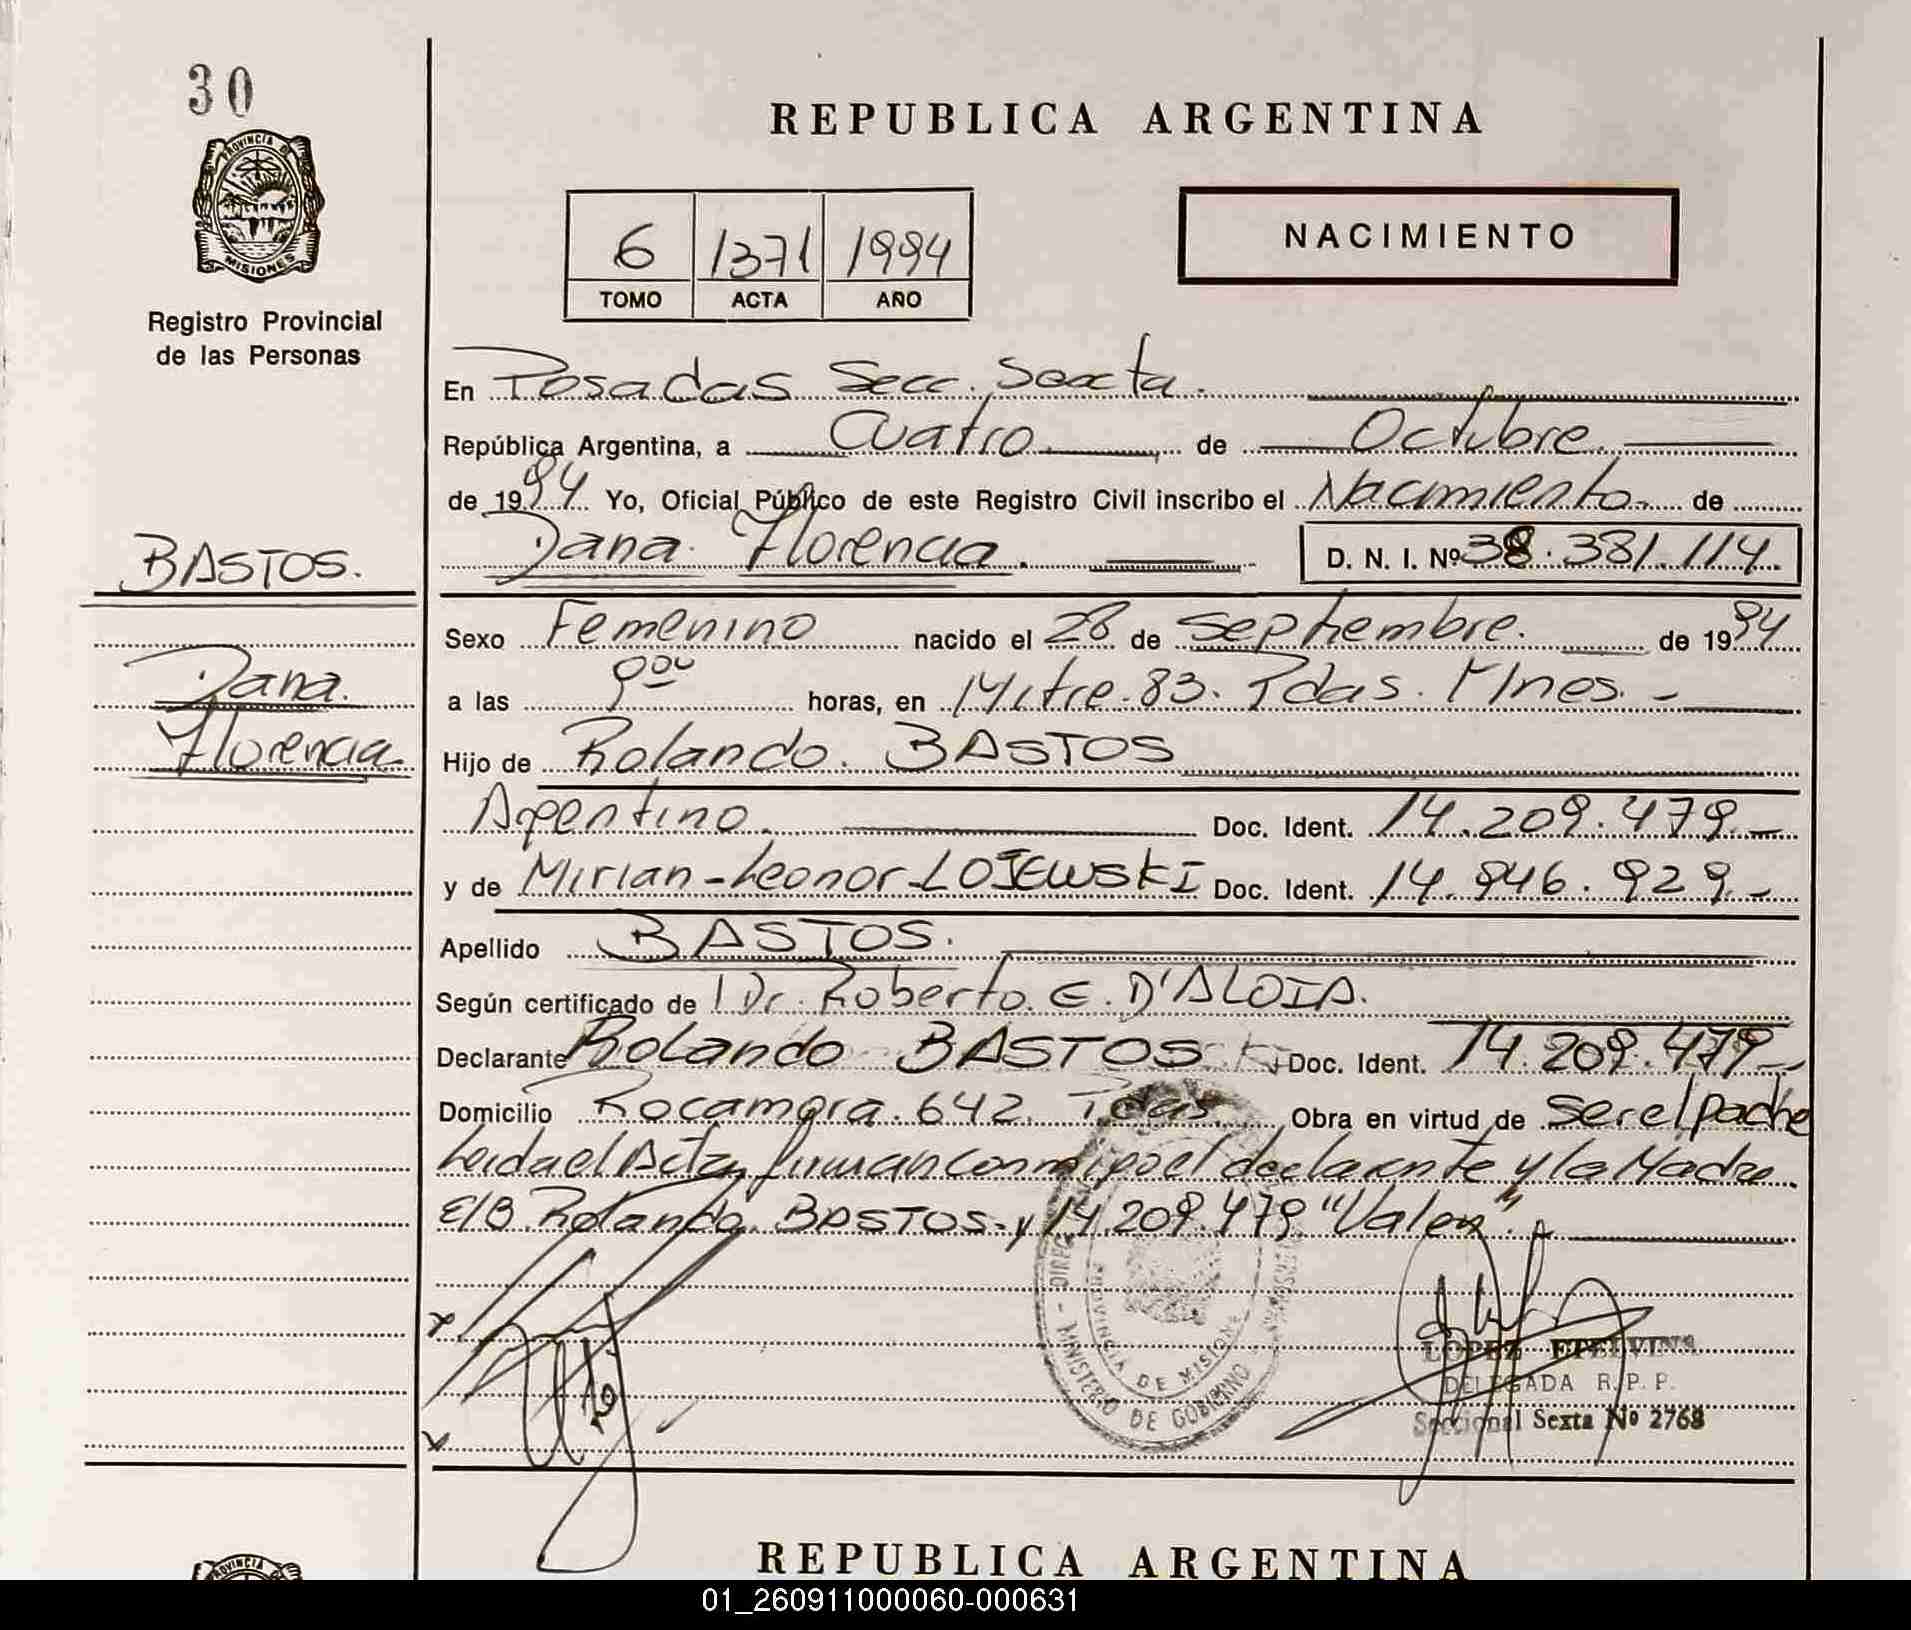 30
PROVINCIA DE
MISIONES
Registro Provincial
de las Personas
REPUBLICA ARGENTINA
6 1371 1994
TOMO ACTA AÑO
NACIMIENTO
En Posadas Secc. Sexta.
República Argentina, a Cuatro de Octubre.
de 1994 Yo, Oficial Público de este Registro Civil inscribo el Nacimiento de
Dana Florencia. D. N. I. Nº 38.381.114.
BASTOS.
Dana.
Florencia
Sexo Femenino nacido el 28 de Septiembre. de 1994
a las 9ºº horas, en Mitre. 83. Pdas. Mnes. -
Hijo de Rolando. BASTOS
Argentino. Doc. Ident. 14.209.479.-
y de Mirian-Leonor LOJEWSKI Doc. Ident. 14.946.929.-
Apellido BASTOS.
Según certificado de Dr. Roberto. E. D'ALOIA.
Declarante Rolando BASTOS Doc. Ident. 14.209.479-
Domicilio Rocamora. 642. Pdas. Obra en virtud de ser el padre
Leida el Acta, firman conmigo el declarante y la Madre.
E/B Rolando. BASTOS- y 14.209.479 "Valen".
MINISTERIO DE GOBIERNO
PROVINCIA DE MISIONES
LOPEZ ETELVINA
DELEGADA R. P. P.
Seccional Sexta Nº 2768
REPUBLICA ARGENTINA
PROVINCIA
01_260911000060-000631